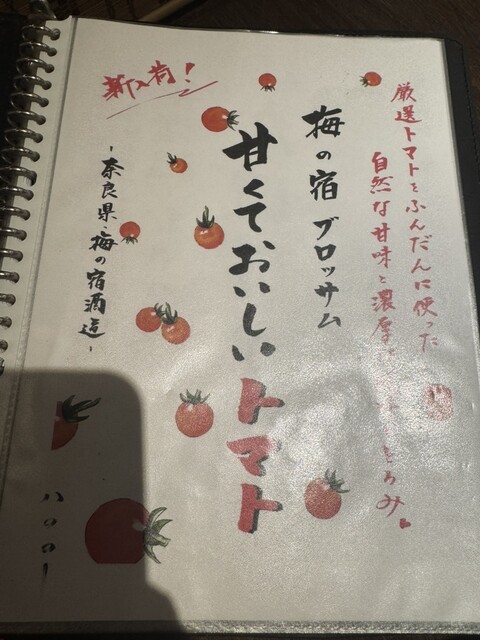 厳選トマトをふんだんに使った
自然な甘味と濃厚な とろみ
梅の宿 ブロッサム
甘くておいしいトマト
新入荷!
-奈良県・梅の宿酒造-